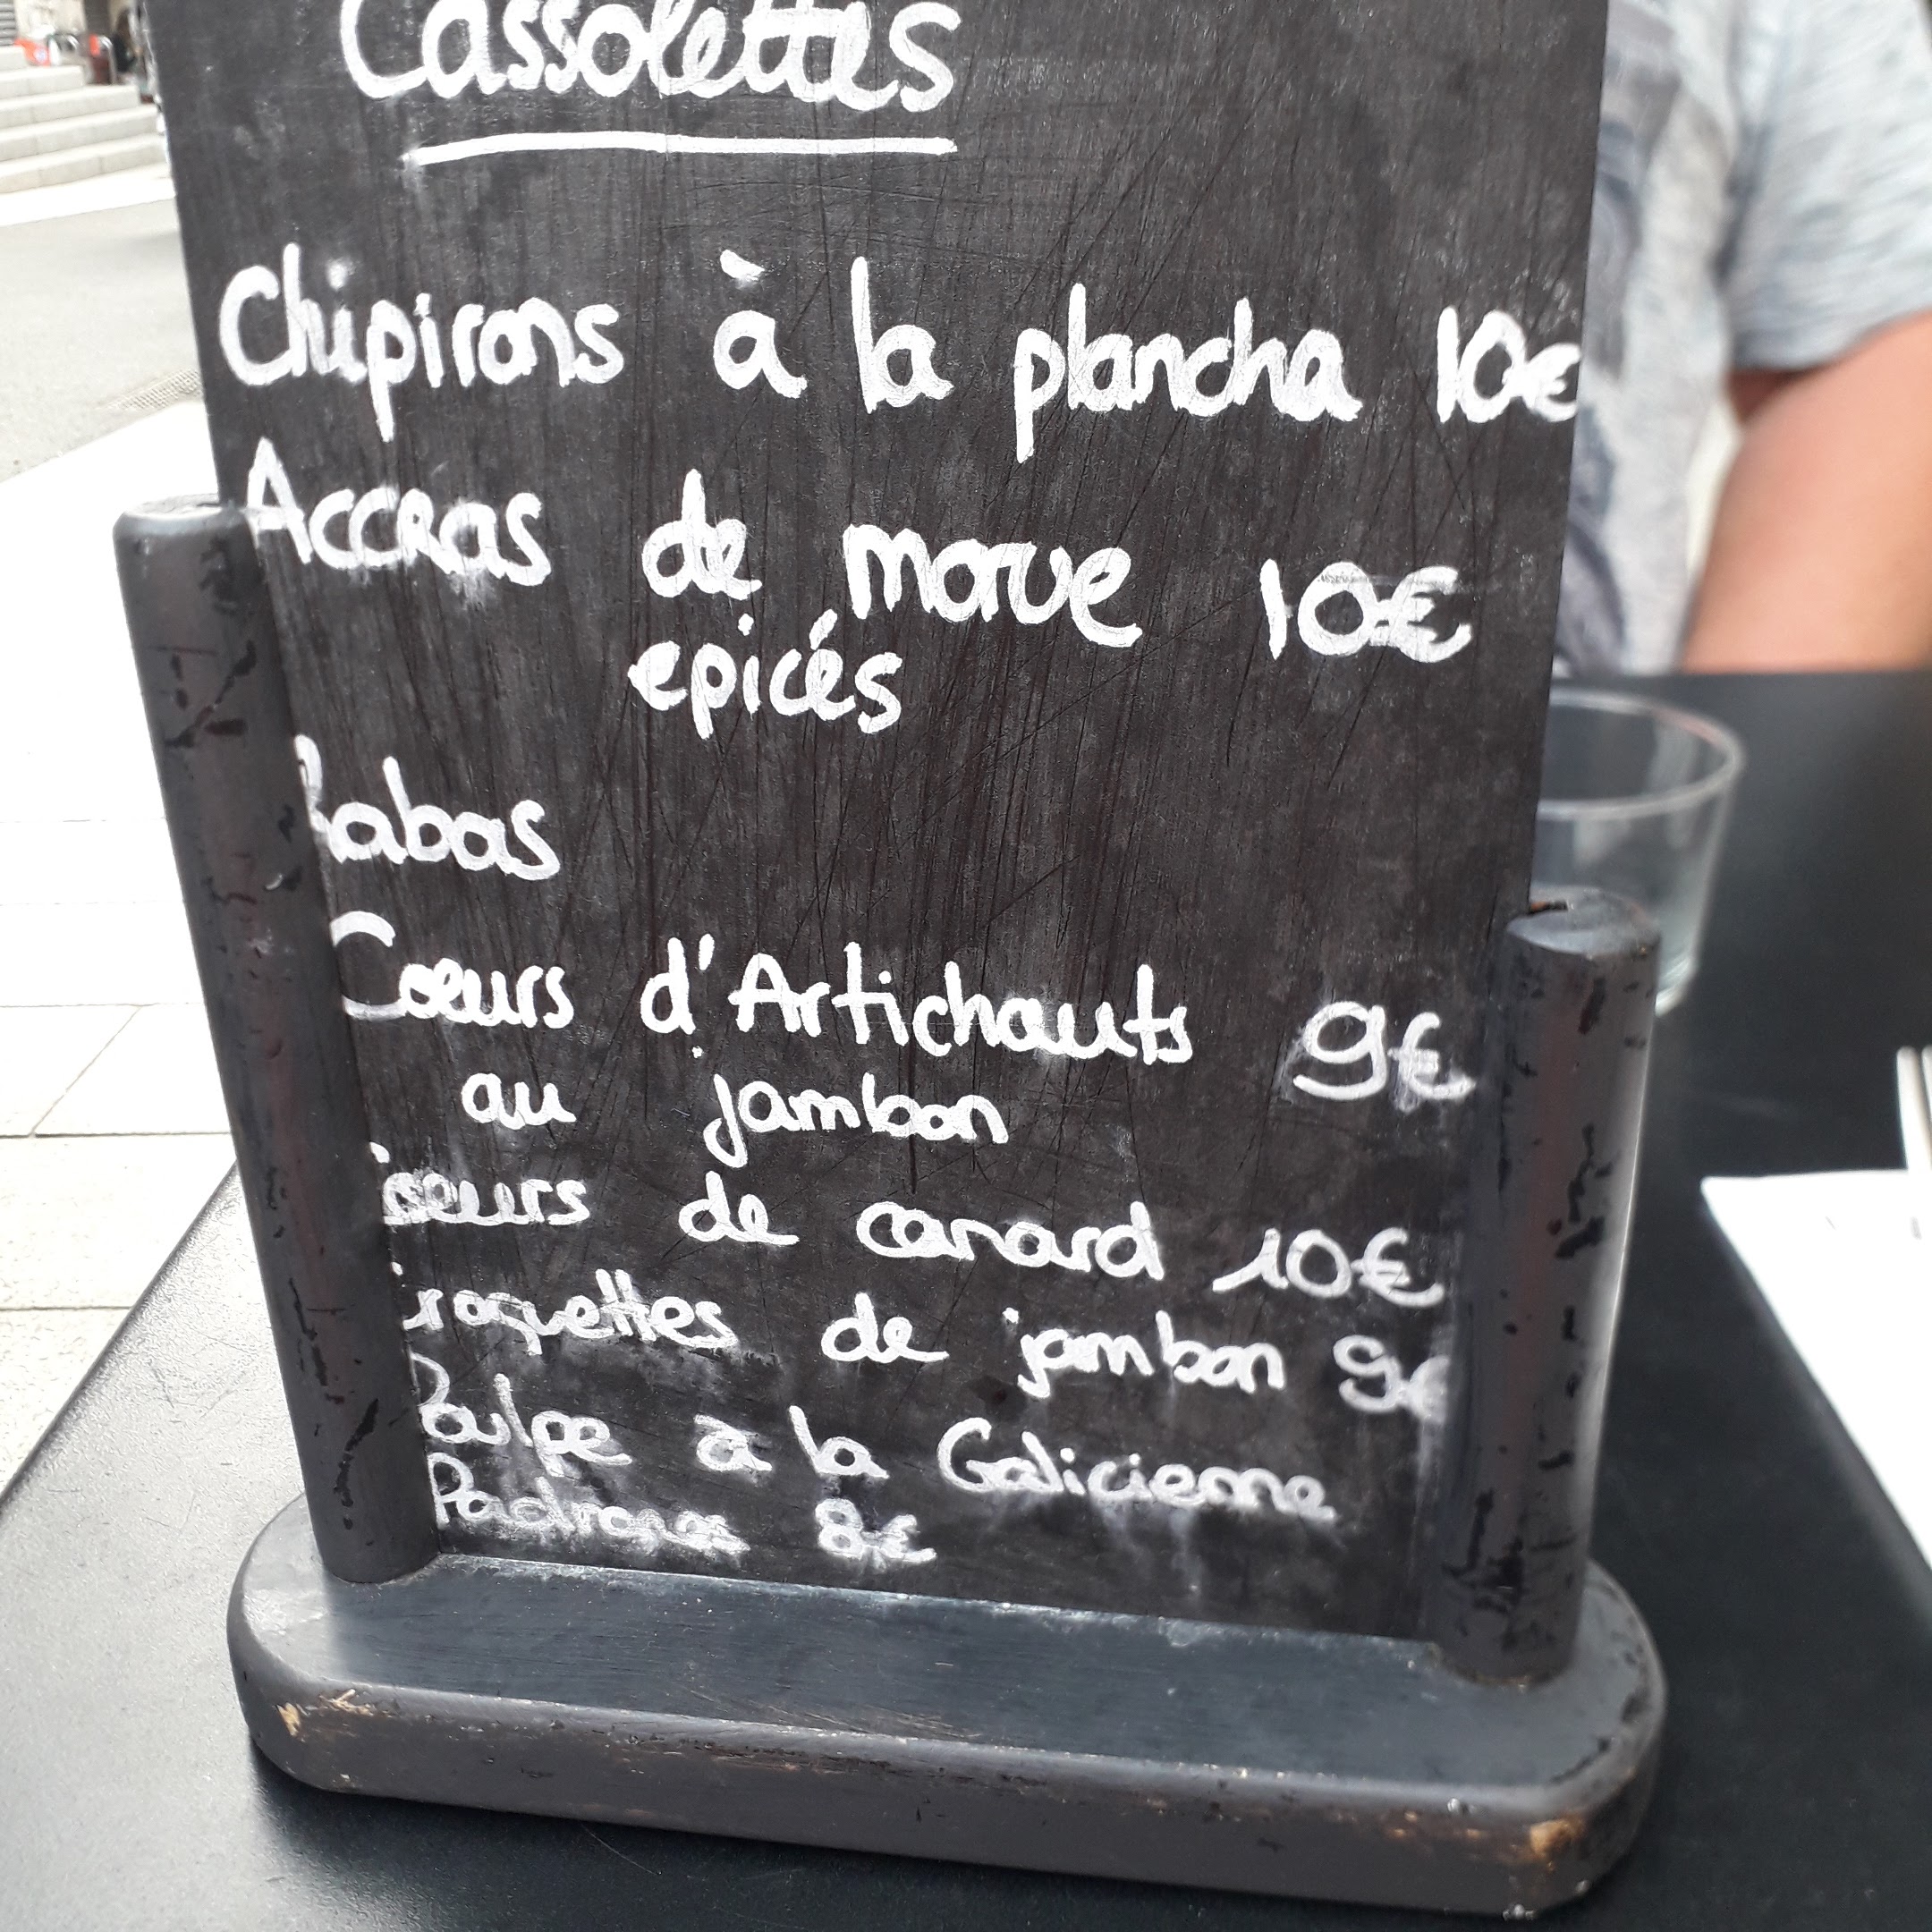 Cassolettes
Chipirons à la plancha 10€
Accras de morue 10€
epicés
Rabas
Coeurs d'Artichauts 9€
au jambon
coeurs de canard 10€
Croquettes de jambon 9€
Poulpe à la Galicienne
Padrones 8€